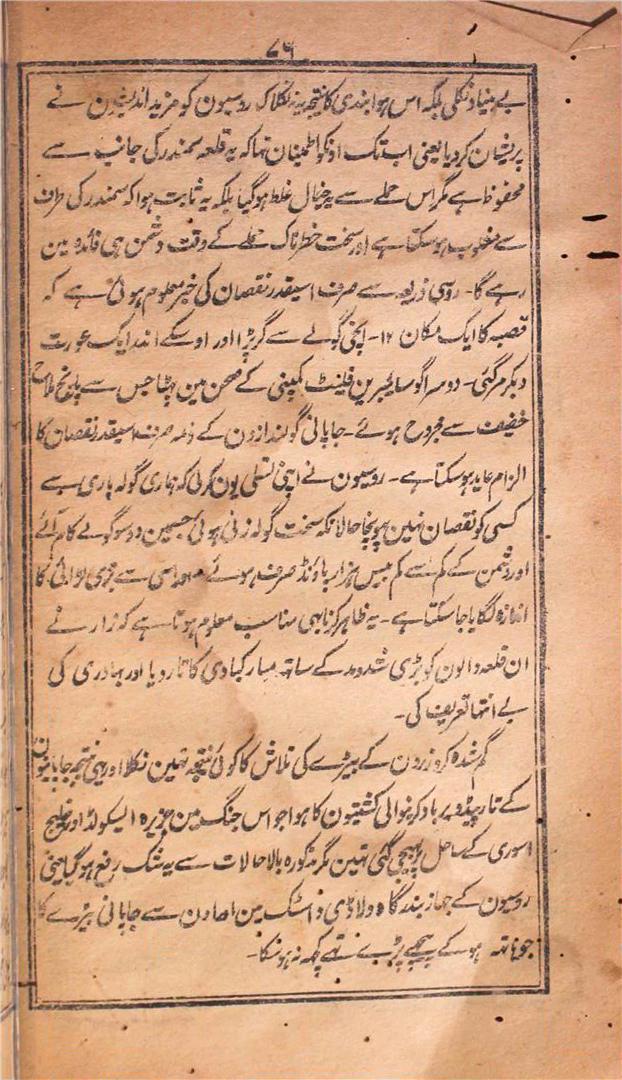 ۷۶
بے بنیاد نکلی بلکہ اس ہوا بندی کا نتیجہ یہ نکلا کہ روسیون کو مزید اندیشون نے
پریشان کردیا یعنی اب تک اونکو اطمینان تہا کہ یہ قلعہ سمندر کی جانب سے
محفوظ ہے مگر اس حملے سے یہ خیال غلط ہوگیا بلکہ یہ ثابت ہوا کہ سمندر کی طرف
سے مغلوب ہوسکتا ہے اور سخت خطرناک حملے کے وقت دشمن ہی فائدہ مین
رہے گا۔ روسی ذریعہ سے صرف اسیقدر نقصان کی خبر معلوم ہوئی ہے کہ
قصبہ کا ایک مکان ۱۲۔ اپنچی گولے سے گر پڑا اور اوسکے اندر ایک عورت
دبکر مرگئی۔ دوسرا گولہ سایبرین فلینٹ کمپنی کے صحن مین پہٹا جس سے پانچ ملاح
خفیف سے مجروح ہوئے۔ جاپانی گولندازون کے ذمہ صرف اسیقدر نقصان کا
الزام عاید ہوسکتا ہے۔ روسیون نے اپنی تسلی یون کرلی کہ ہماری گولہ باری سے
کسی کو نقصان نہین پہونچا حالانکہ سخت گولہ زنی ہوئی جسمین دو سو گولے کام آئے
اور دشمن کے کم سے کم بیس ہزار پاؤنڈ صرف ہوئے اسی سے بحری لڑائی کا
اندازہ لگایا جاسکتا ہے۔ یہ ظاہر کرنا بہی مناسب معلوم ہوتا ہے کہ زار نے
ان قلعہ والون کو بڑی شد و مد کے ساتھ مبارکبادی کا تار دیا اور بہادری کی
بے انتہا تعریف کی۔
گم شدہ کروزرون کے بیڑے کی تلاش کا کوئی نتیجہ نہین نکلا اور یہی نتیجہ جاپانیون
کے تارپیڈو برباد کرنیوالی کشتیون کا ہوا جو اس جنگ مین جزیرہ اسیکولڈ اور خلیج
اسوری کے ساحل پر بہیجی گئی تہین مگر مذکورہ بالا حالات سے یہ شک رفع ہوگیا یعنی
روسیون کے جہاز بندرگاہ ولاڈی وسٹک مین تہے اون سے جاپانی بیڑے کا
جو ہاتھ ہو کے پیچھے پڑے تہے کچھ نہ ہوسکا۔